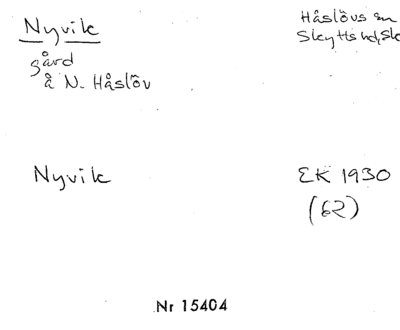 Nyvik
Håslövs sn
Skytts hd, Sk
gård
å N. Håslöv
Nyvik
EK 1930
(62)
Nr 15404